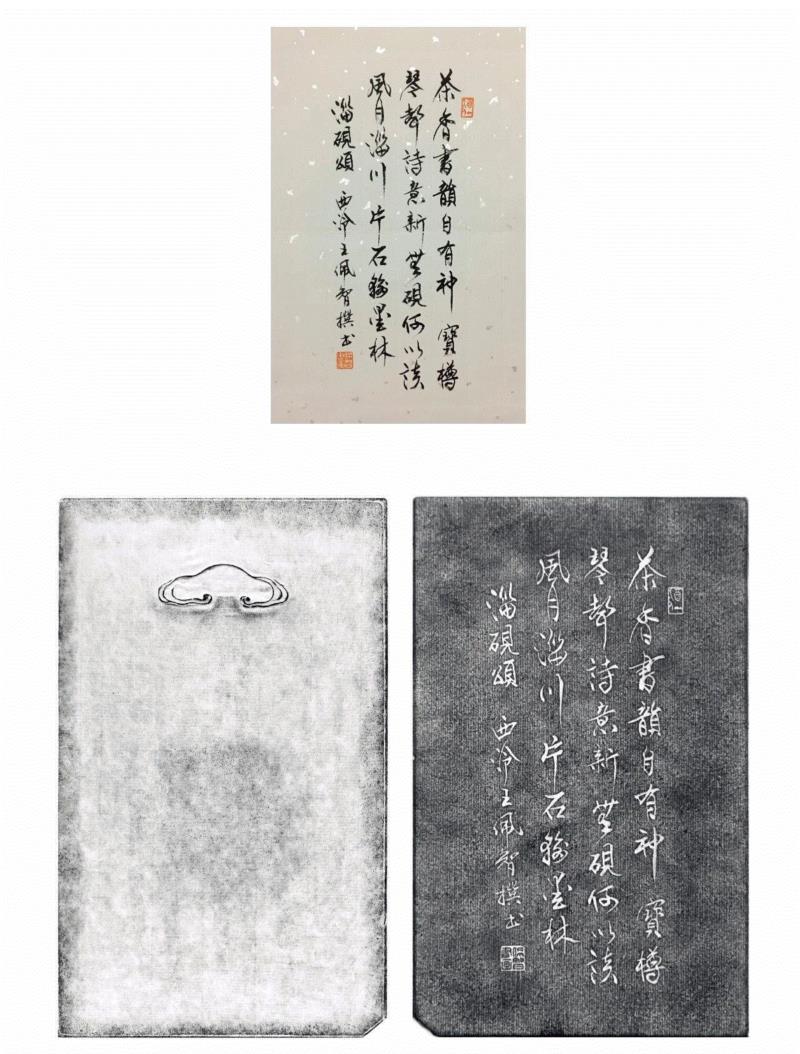 茶香書韻自有神 寶樽
琴聲詩意新 無硯何以談
風月淄川 片石豁墨林
淄硯頌 西泠王佩智撰书
茶香書韻自有神 寶樽
琴聲詩意新 無硯何以談
風月淄川 片石豁墨林
淄硯頌 西泠王佩智撰书